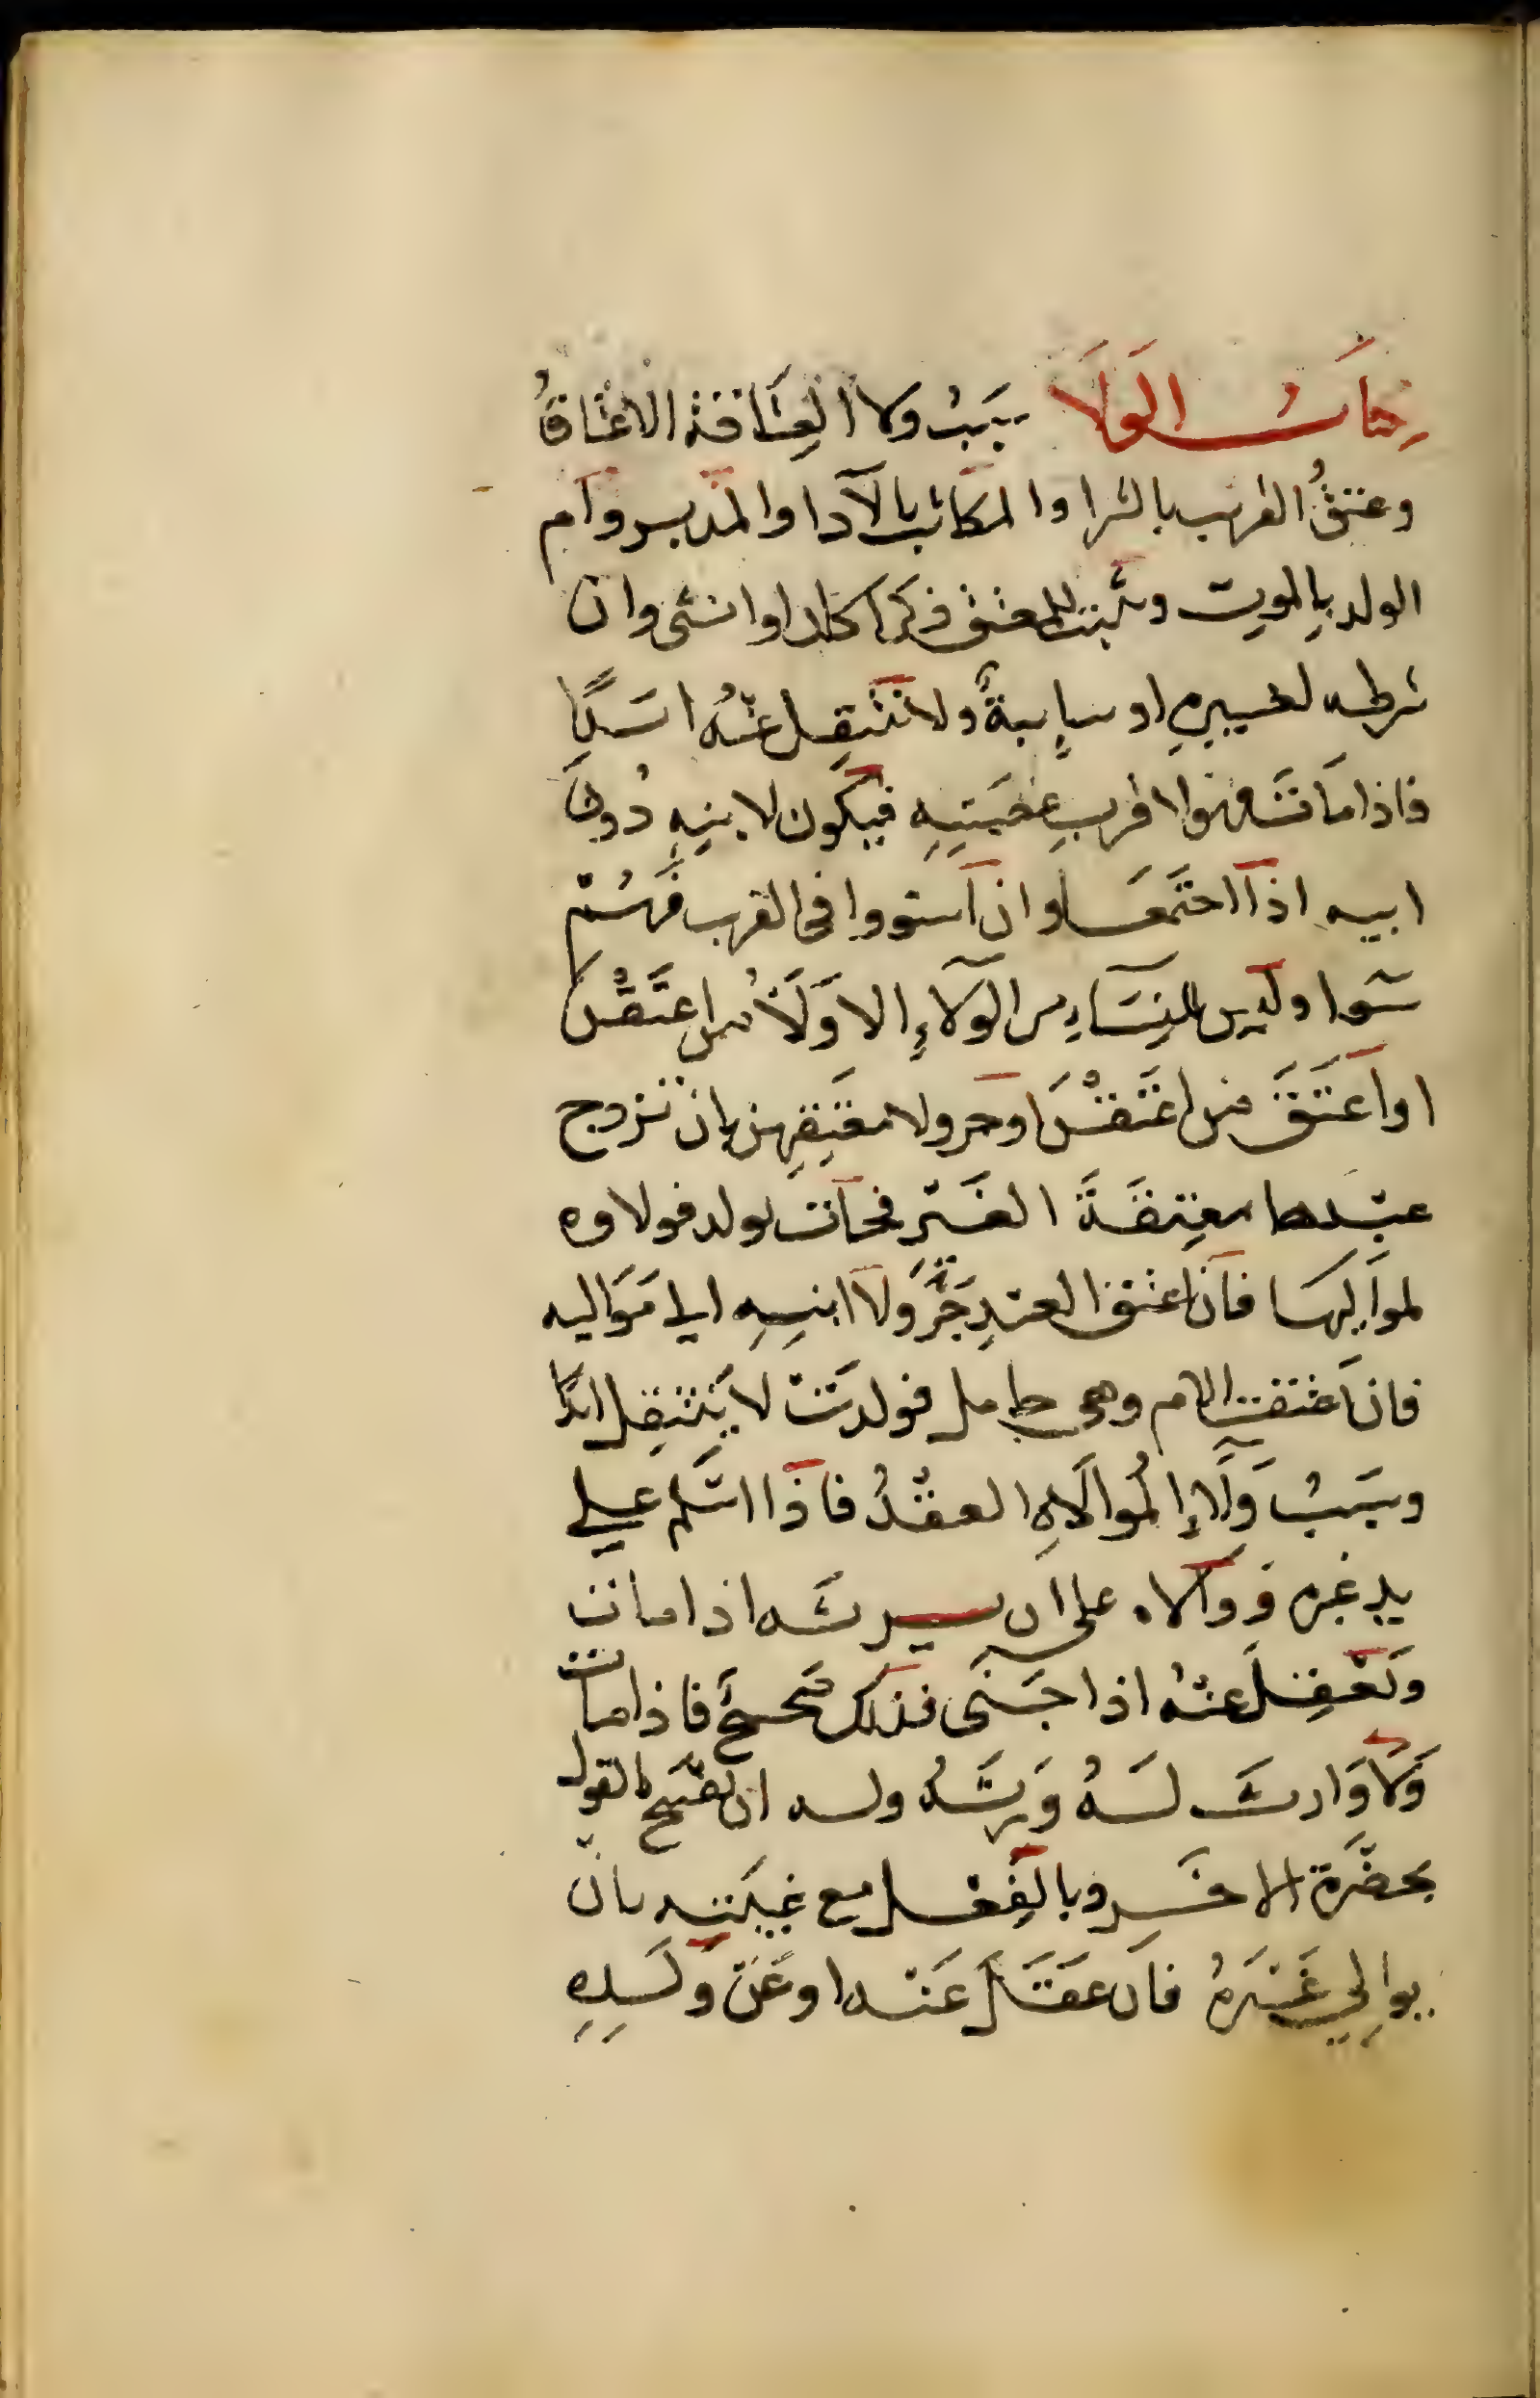 كتاب الولا سبب ولا العتاقة الاعتاق
وعتق القريب بالشرا والمكاتب بالادا والمدبر وام
الولد بالموت ويثبت للمعتق ذكرا كان او انثى وان
شرطه لغيره او سايبة ولا ينتقل عنه ابدا
فاذا مات فهو لاقرب عصبته فيكون لابنه دون
ابيه اذا اجتمعا وان استووا في القرب فهم
سوا وليس للنساء من الولاء الا ولاء من اعتقن
او اعتق من اعتقن او جر ولا معتقهن بان تزوج
عبدها معتقة الغير فجات بولد فولاوه
لمواليها فان اعتق العبد جر ولا ابنه الى مواليه
فان اعتقت الام وهي حامل فولدت لا ينتقل ابدا
وسبب ولاء الموالاة العقد فاذا اسلم على
يد غيره ووالاه على ان يرثه اذا مات
ويعقل عنه اذا جنى فذلك صحيح فاذا مات
ولا وارث له ورثه وله ان يفسخ بالقول
بحضرة الاخر وبالفعل مع غيبته بان
يوالي غيره فان عقل عنه او عن ولده